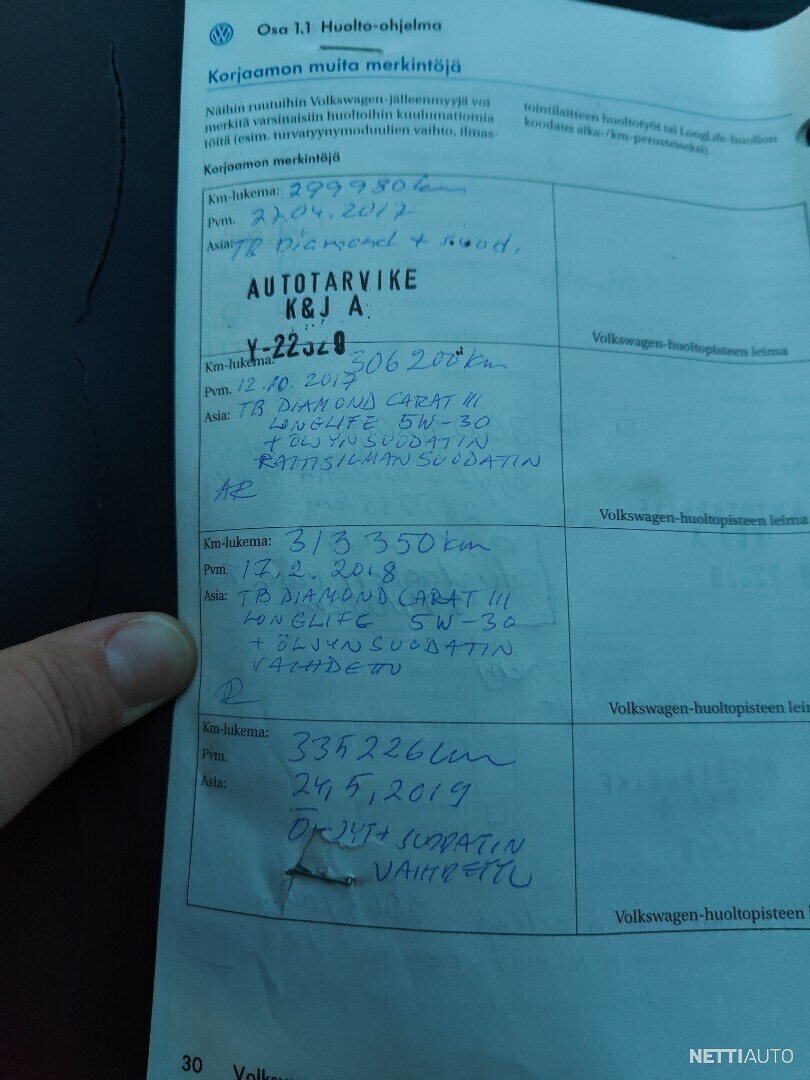 Osa 1.1 Huolto-ohjelma
Korjaamon muita merkintöjä
Näihin ruutuihin Volkswagen-jälleenmyyjä voi
merkitä varsinaisiin huoltoihin kuulumattomia
töitä (esim. turvatyynymoduulien vaihto, ilmas-
tointilaitteen huoltotyöt tai LongLife-huollon
koodaus aika-/km-perusteiseksi).
Korjaamon merkintöjä
Km-lukema: 299980 km
Pvm. 27.04.2017
Asia: TB Diamond + suod.
AUTOTARVIKE
K&J A
Y-22329
Volkswagen-huoltopisteen leima
Km-lukema: 306200 km
Pvm. 12.10.2017
Asia: TB DIAMOND CARAT III
LONGLIFE 5W-30
+ ÖLJYNSUODATIN
RAITISILMANSUODATIN
AR
Volkswagen-huoltopisteen leima
Km-lukema: 313 350 km
Pvm. 17.2.2018
Asia: TB DIAMOND CARAT III
LONGLIFE 5W-30
+ ÖLJYNSUODATIN
VAIHDETTU
Volkswagen-huoltopisteen lei
Km-lukema: 335226 km
Pvm. 24,5,2019
Asia:
+ SUODATIN
VAIHDETTU
Volkswagen-huoltopisteen l
30 Volks
NETTIAUTO